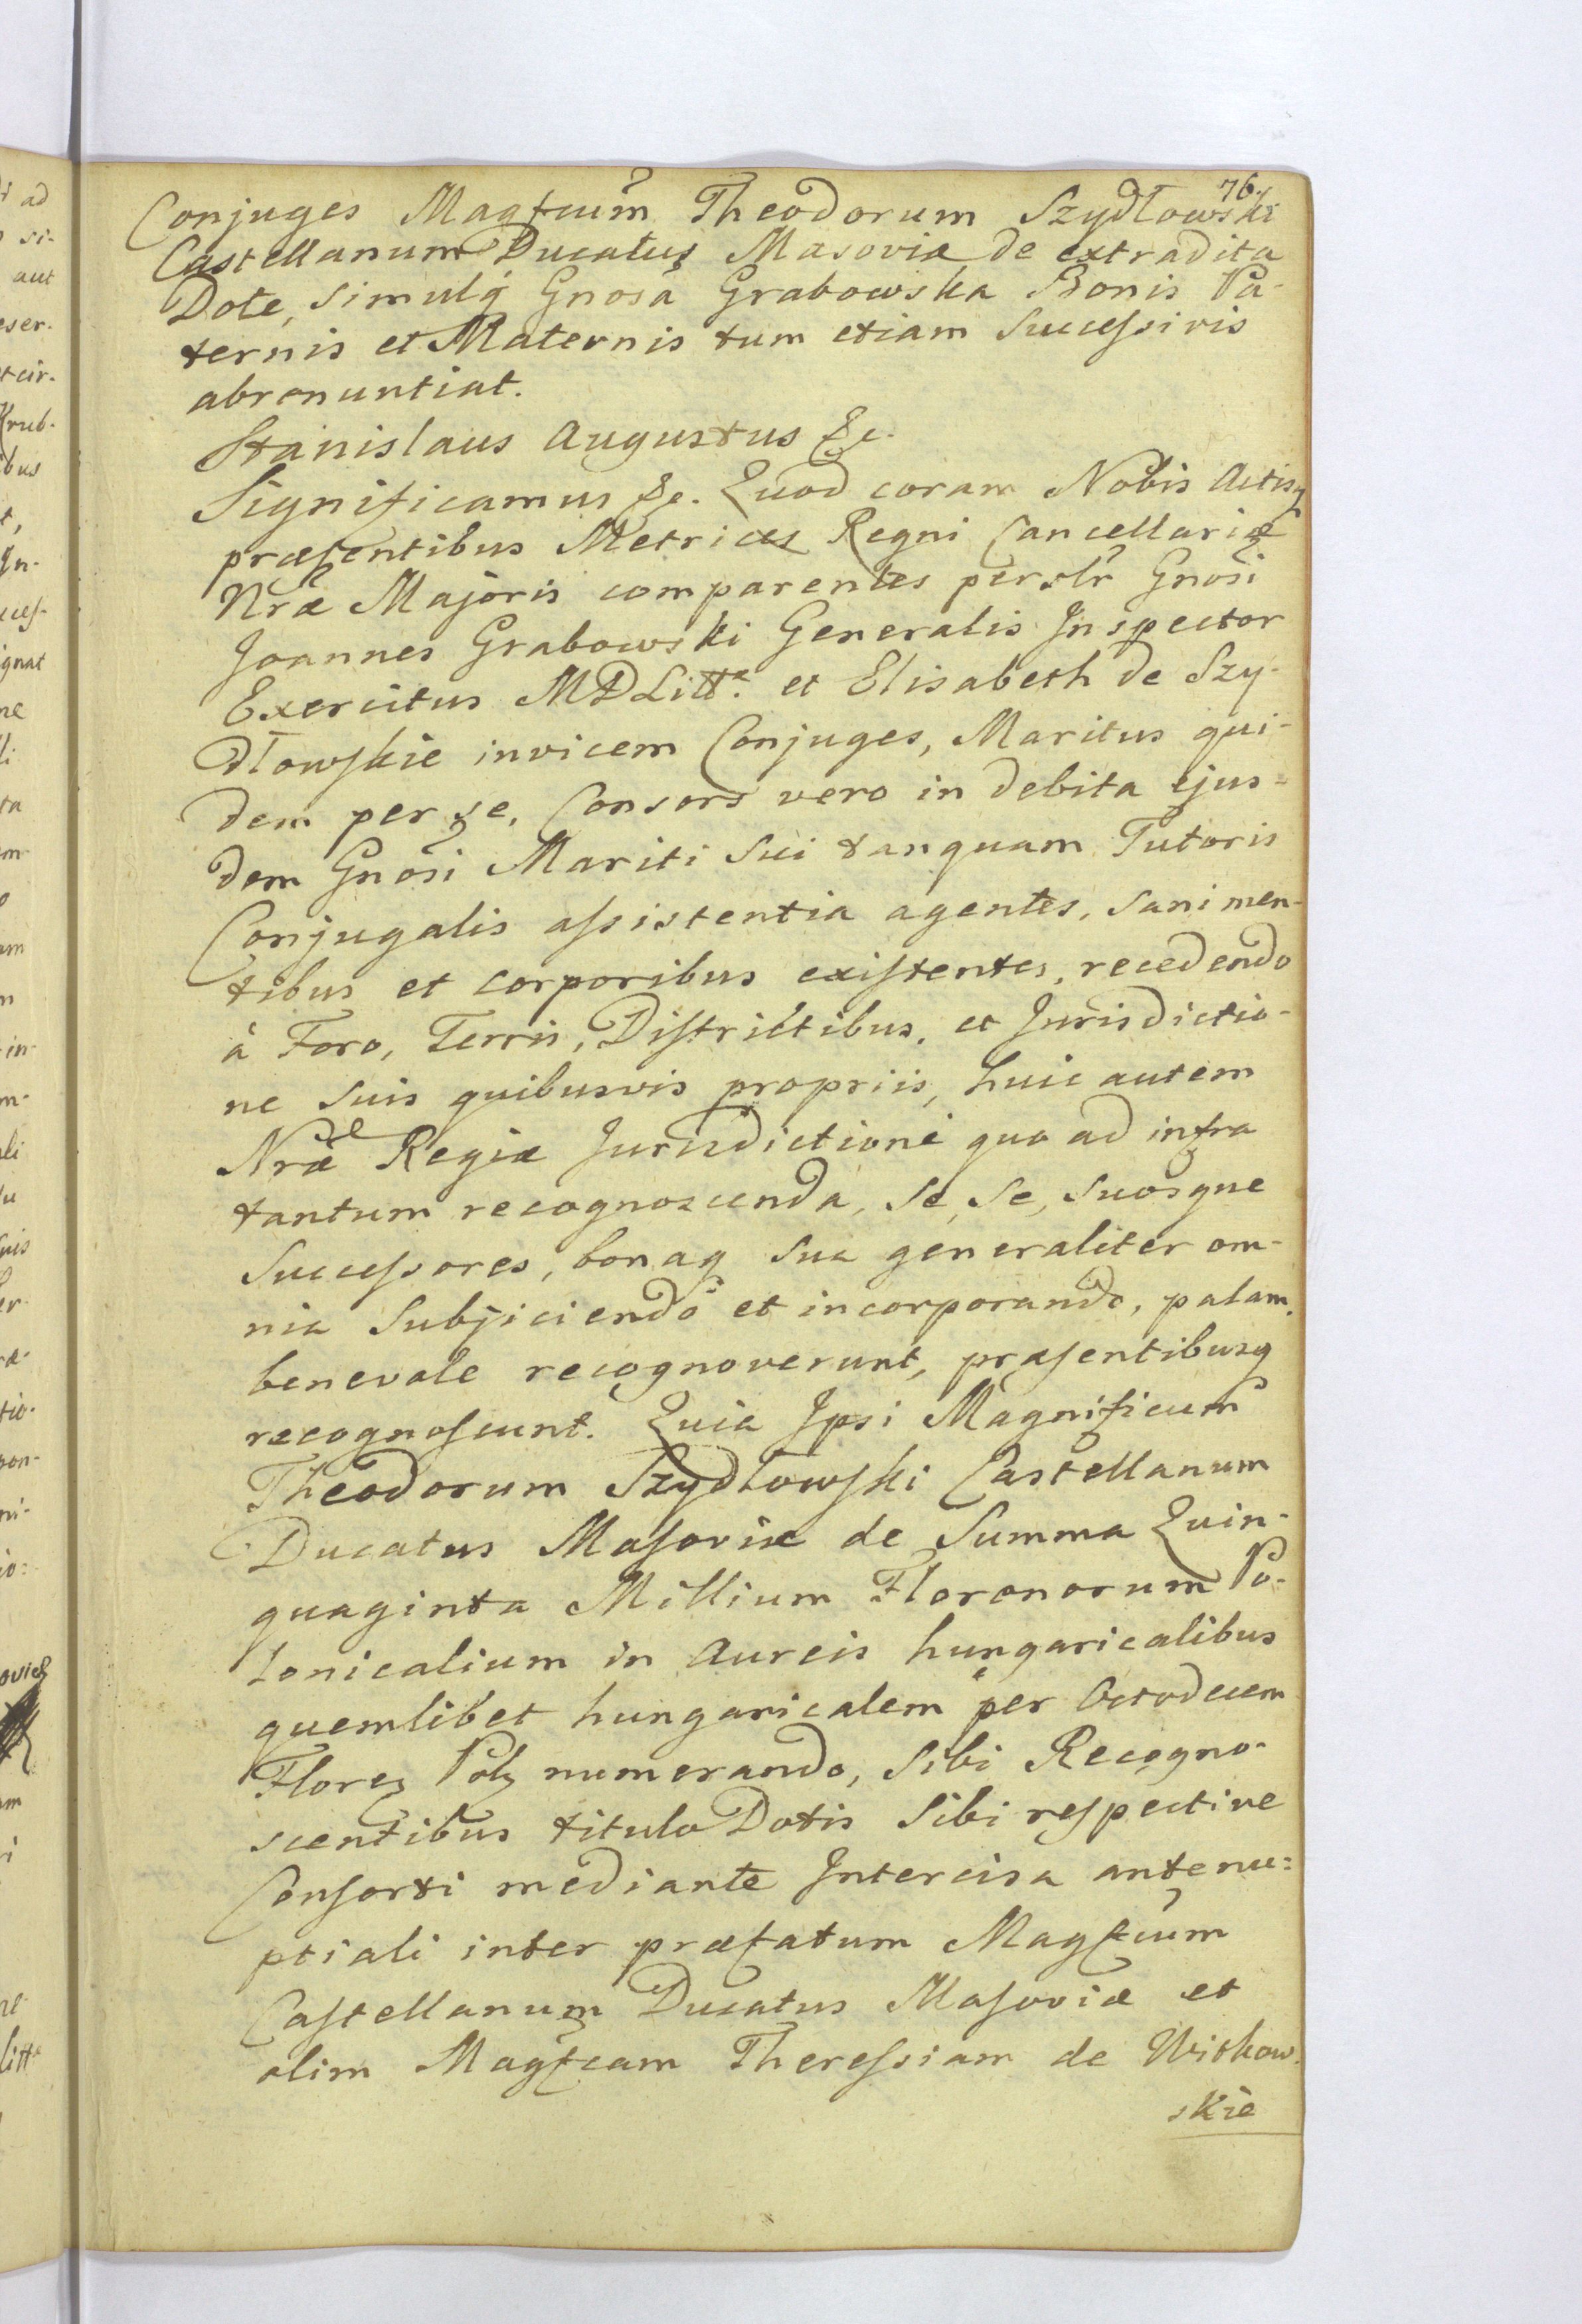 76.
Conjuges Magfcum Theodorum Szydłowski
Castellanum Ducatus Masoviæ de extradita
Dote, simulq Gnosa Grabowska Bonis Pa-
ternis et Maternis tum etiam Successivis
abrenuntiat.
Stanislaus Augustus &c.
Significamus &c. Quod coram Nobis Actisq
præsentibus Metrices Regni Cancellariæ
Nræ Majoris comparentes perslr Gnosi
Joannes Grabowski Generalis Inspector
Exercitus MDLitt. et Elisabeth de Szy-
dłowskie invicem Conjuges, Maritus qui-
dem per se, Consors vero in debita ejus-
dem Gnosi Mariti Sui tanquam Tutoris
Conjugalis assistentia agentes, sani men-
tibus et corporibus existentes, recedendo
à Foro, Terris, Districtibus, et Jurisdictio-
ne Suis quibusvis propriis, huic autem
Nræ Regiæ Jurisdictioni quo ad infra
tantum recognoscenda, se, se, suosque
Successores, bonaq sua generaliter om-
nia Subjiciendo et incorporando, palam,
benevole recognoverunt, præsentibusq
recognoscunt. Quia Ipsi Magnificum
Theodorum Szydłowski Castellanum
Ducatus Masoviæ de Summa Quin-
quaginta Millium Florenorum Po-
lonicalium in Aureis hungaricalibus
quemlibet hungaricalem per Octodecem
Flores Pol numerando, Sibi Recogno-
scentibus titulo Dotis Sibi respective
Consorti mediante Intercisa antenu-
ptiali inter præfatum Magfcum
Castellanum Ducatus Masoviæ et
olim Magfcam Theressiam de Witkow-
skie